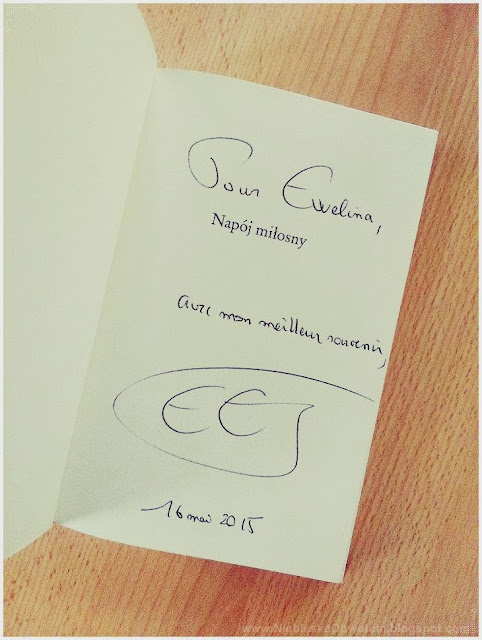 Pour Ewelina,
Napój miłosny
avec mon meilleur souvenir,
EES
16 mai 2015